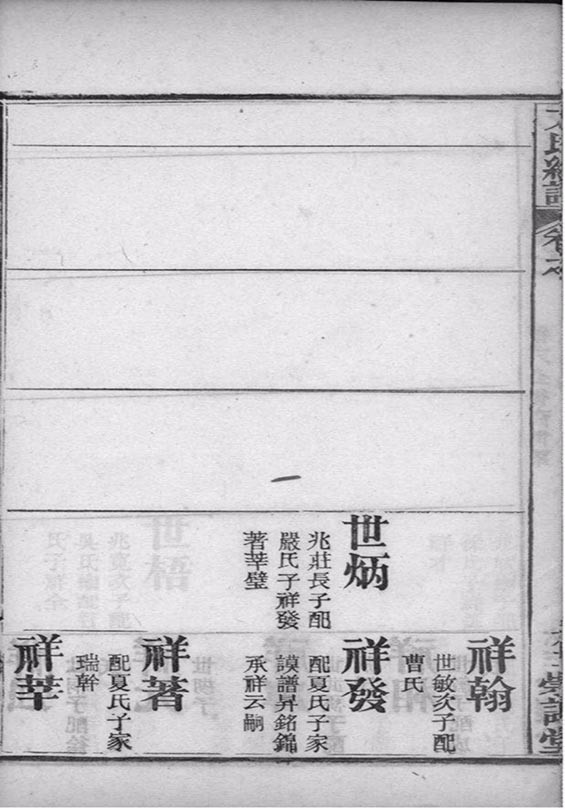 世炳
兆莊長子配
嚴氏子祥發
著莘璧
祥翰
世敏次子配
曹氏
祥發
配夏氏子家
謨譜昇銘錦
承祥云嗣
祥著
配夏氏子家
瑞幹
祥莘